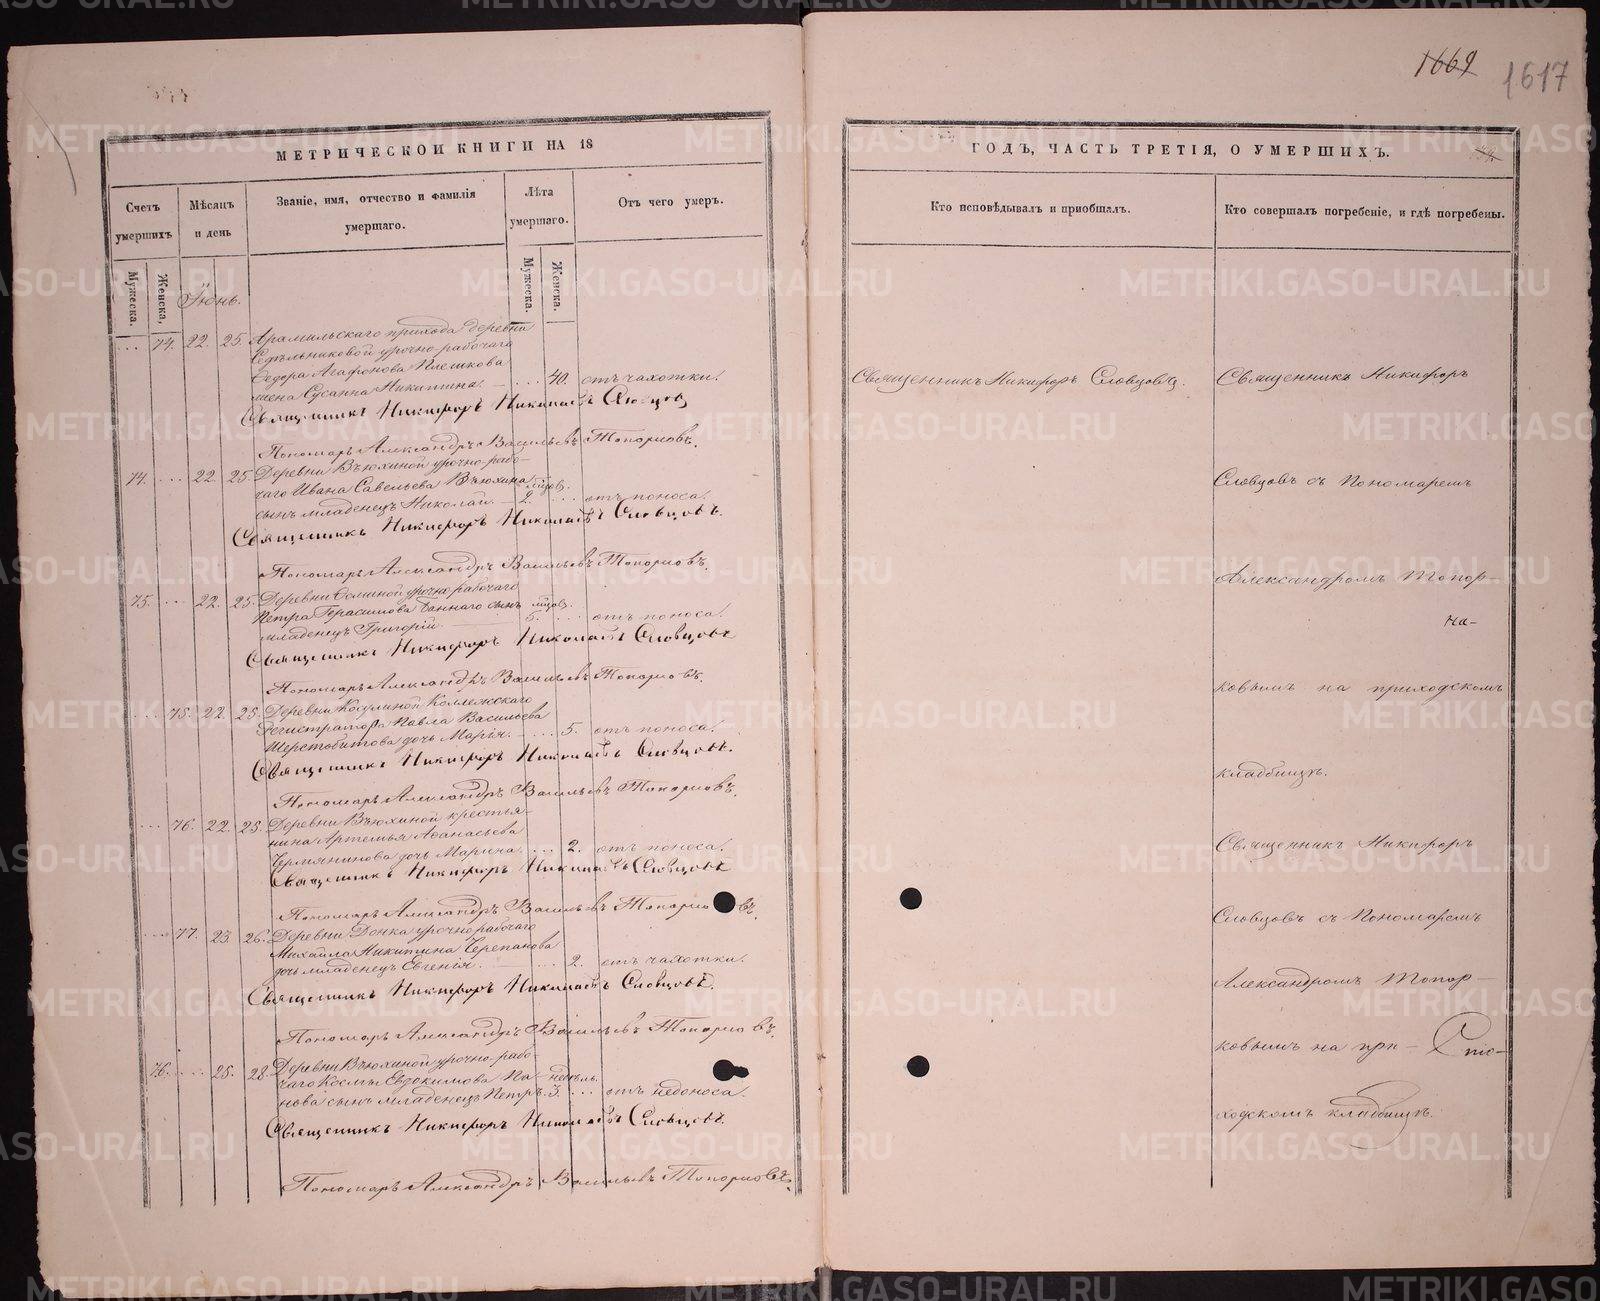 1669 1617
МЕТРИЧЕСКОЙ КНИГИ НА 18
Счетъ умершихъ
Мужеска.
Женска,
Мѣсяцъ и день
Званіе, имя, отчество и фамилія умершаго.
Лѣта умершаго.
Мужеска.
Женска.
Отъ чего умеръ.
Іюнь.
... 74. 22. 25. Арамильскаго прихода деревни
Седѣльниковой урочно-рабочаго
Ѳедора Агафонова Плешкова
жена Сусанна Никитина. — ... 40. отъ чахотки.
Священникъ Никифоръ Николаевъ Словцовъ
Пономарь Александръ Васильевъ Топорковъ.
74. ... 22. 25. Деревни Вьюхиной урочно-рабо-
чаго Ивана Савельева Вьюхина мѣсяц.
сынъ младенецъ Николай. — 2. ... отъ поноса.
Священникъ Никифоръ Николаевъ Словцовъ.
Пономарь Александръ Васильевъ Топорковъ.
75. ... 22. 25. Деревни урочно-рабочаго
Петра Герасимова Баннаго сынъ мѣсяц.
младенецъ Григорій — 5. ... отъ поноса.
Священникъ Никифоръ Николаевъ Словцовъ
Пономарь Александръ Васильевъ Топорковъ.
... 75. 22. 25. Деревни Косулиной Коллежскаго
Регистратора Павла Васильева
Шерстобитова дочь Марія. — ... 5. отъ поноса.
Священникъ Никифоръ Николаевъ Словцовъ.
Пономарь Александръ Васильевъ Топорковъ.
... 76. 22. 25. Деревни Вьюхиной крестья-
нина Артемья Аѳанасьева
Чермянинова дочь Марина. ... 2. отъ поноса.
Священникъ Никифоръ Николаевъ Словцовъ
Пономарь Александръ Васильевъ Топорковъ.
... 77. 23. 26. Деревни урочно-рабочаго
Михаила Никитина Черепанова
дочь младенецъ Евгенія. — ... 2. отъ чахотки.
Священникъ Никифоръ Николаевъ Словцовъ.
Пономарь Александръ Васильевъ Топорковъ.
76. ... 25. 28. Деревни Вьюхиной урочно-рабо-
чаго Космы Евдокимова Па- недѣль.
нова сынъ младенецъ Петръ. 3. ... отъ недоноса.
Священникъ Никифоръ Николаевъ Словцовъ.
Пономарь Александръ Васильевъ Топорковъ.
ГОДЪ, ЧАСТЬ ТРЕТІЯ, О УМЕРШИХЪ.
Кто исповѣдывалъ и пріобщалъ.
Кто совершалъ погребеніе, и гдѣ погребены.
Священникъ Никифоръ Словцовъ.
Священникъ Никифоръ
Словцовъ съ Пономаремъ
Александромъ Топор-
на-
ковымъ на приходскомъ
кладбищѣ.
Священникъ Никифоръ
Словцовъ съ Пономаремъ
Александромъ Топор-
ковымъ на при-
ходскомъ кладбищѣ.